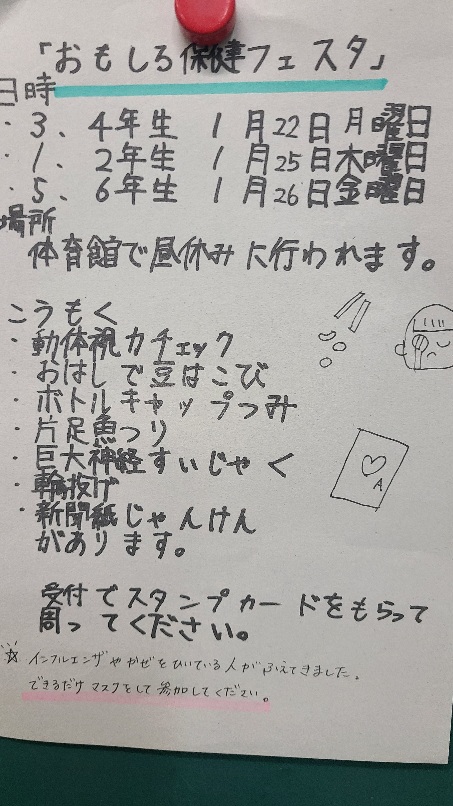 「おもしろ保健フェスタ」
日時
・3、4年生 1月22日月曜日
・1、2年生 1月25日木曜日
・5、6年生 1月26日金曜日
場所
体育館で昼休みに行われます。
こうもく
・動体視力チェック
・おはしで豆はこび
・ボトルキャップつみ
・片足魚つり
・巨大神経すいじゃく
・輪投げ
・新聞紙じゃんけん
があります。
A
受付でスタンプカードをもらって
周ってください。
☆インフルエンザやかぜをひいている人がふえてきました。
できるだけマスクをして参加してください。